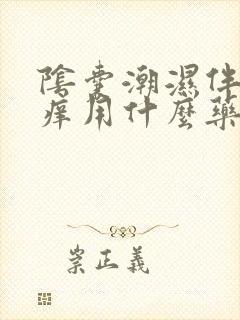 陰囊潮濕伴
痒用什麼藥
崇正義